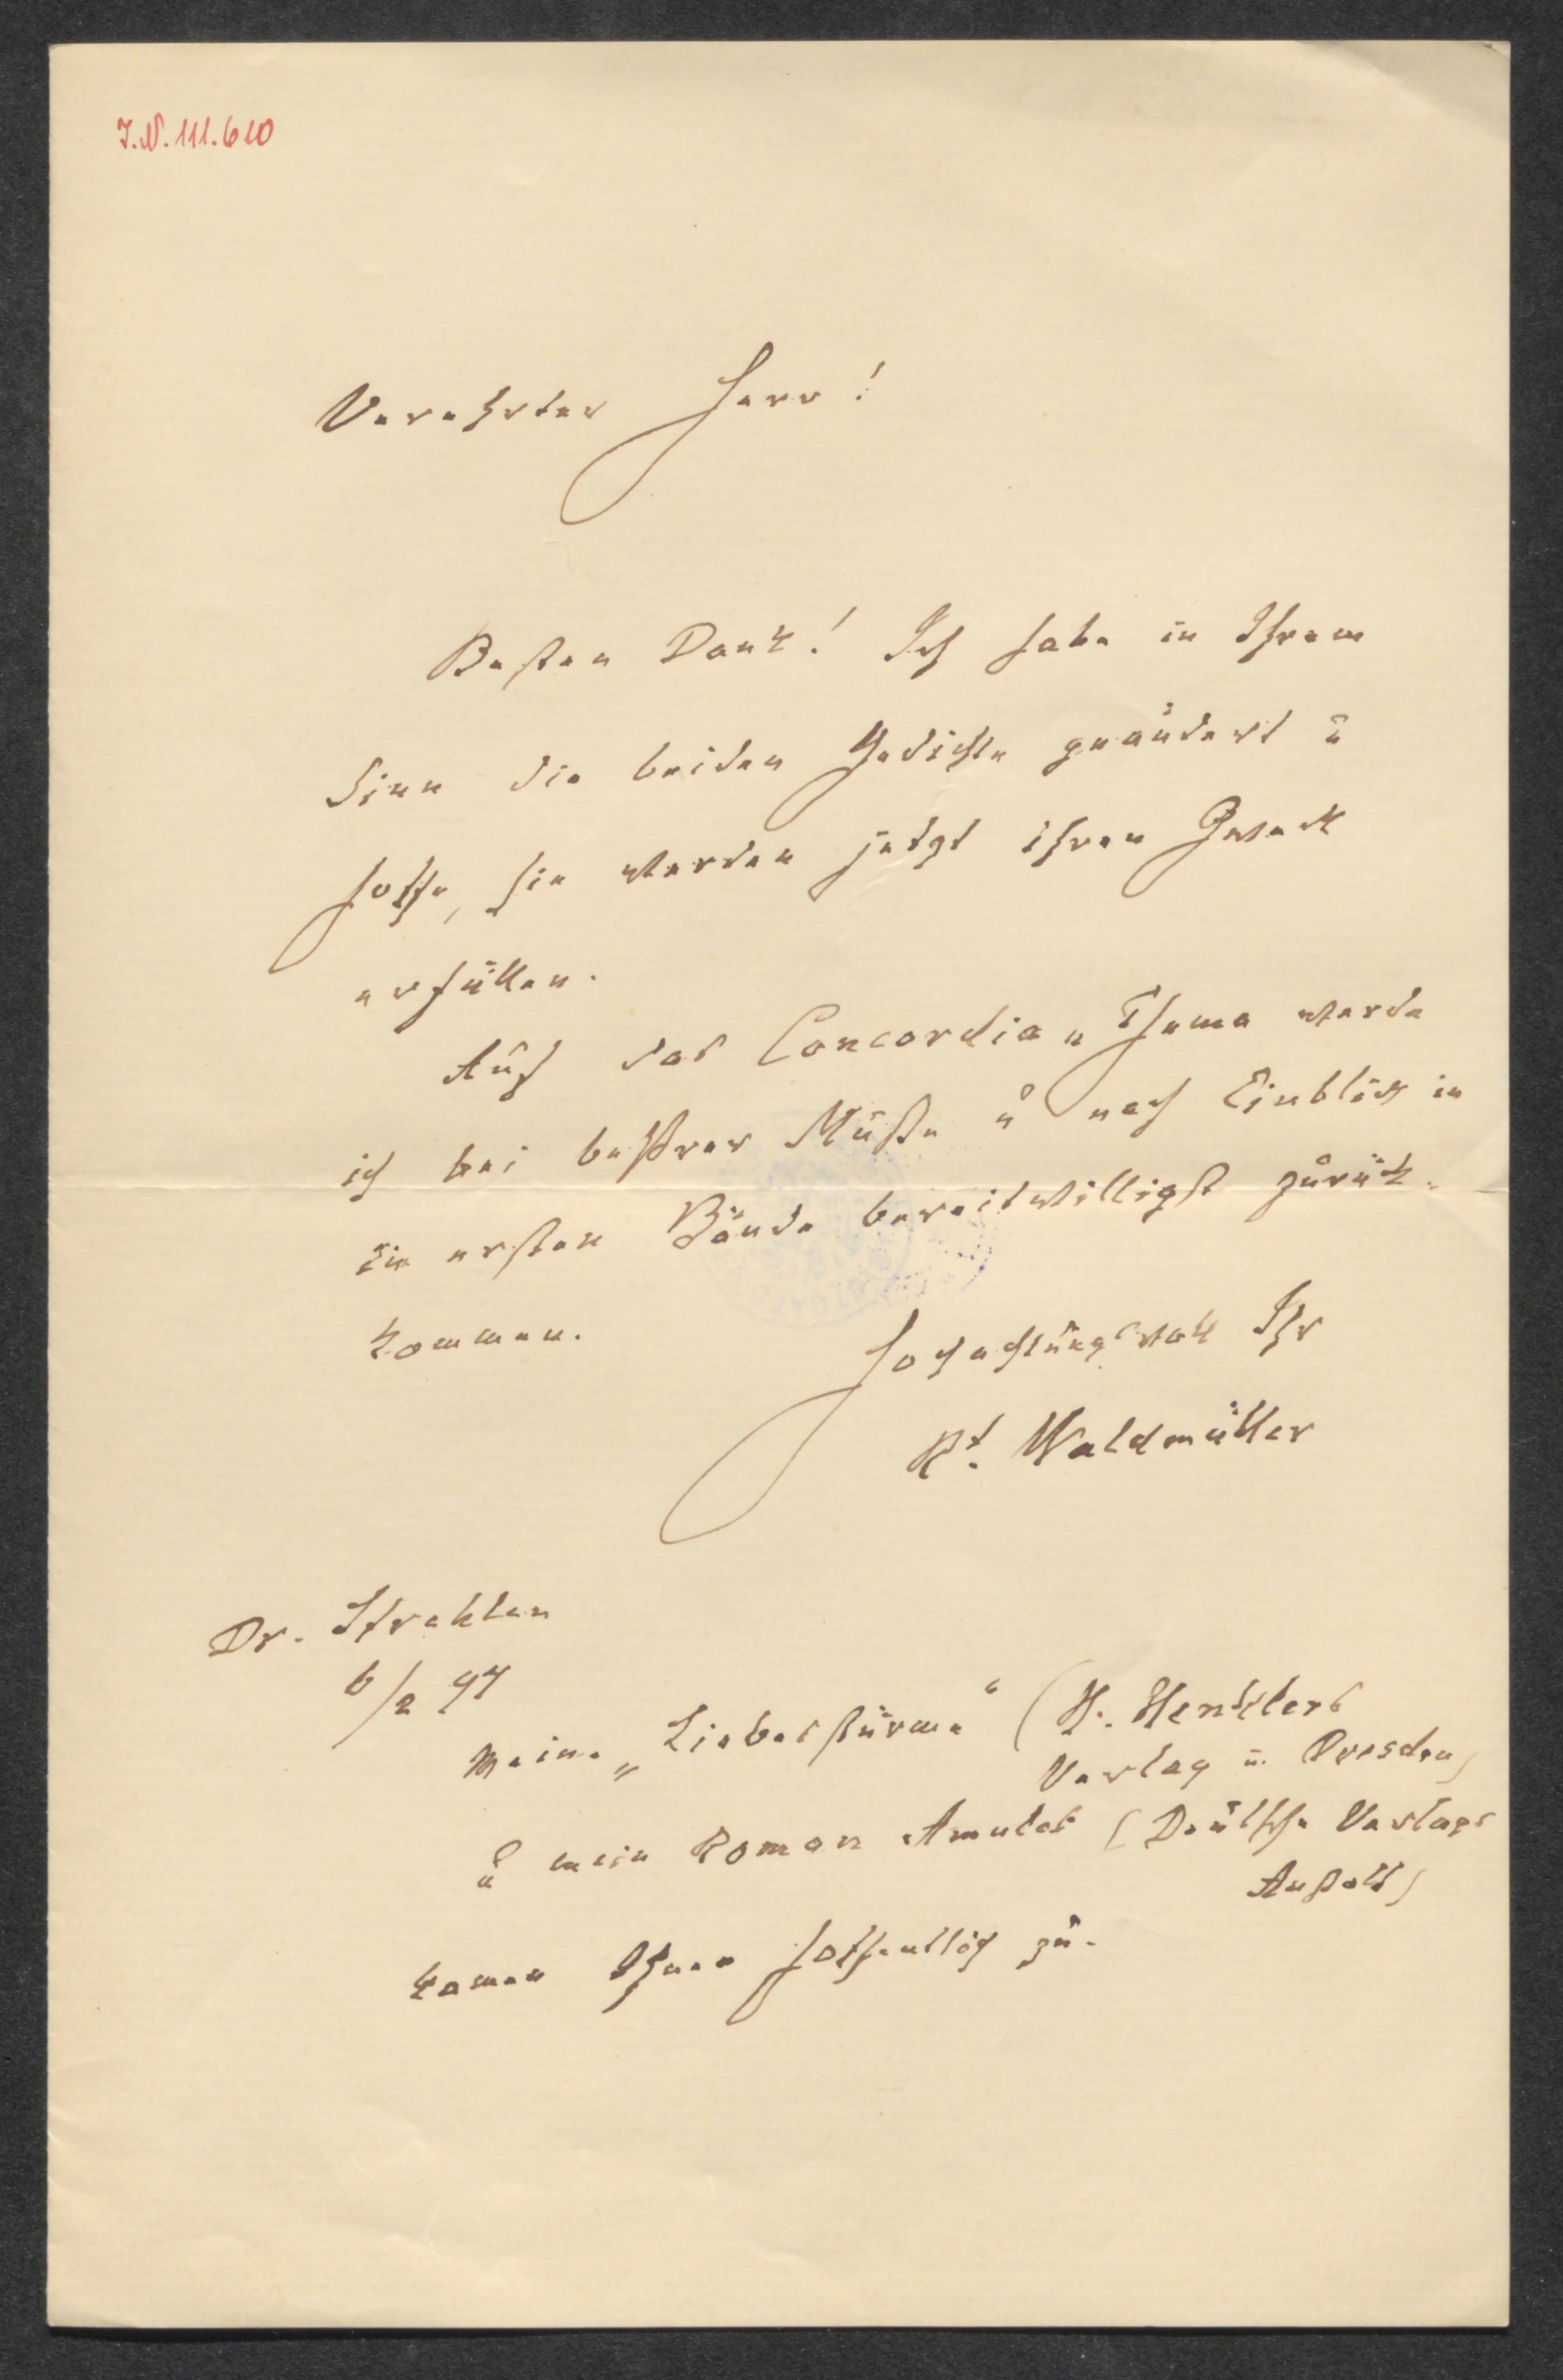 J.N. 111.610
Verehrter Herr!
Besten Dank! Ich habe in Ihrem
Sinn die beiden Gedichte geändert u
hoffe, sie werden jetzt ihren Zweck
erfüllen.
Auf das Concordia-Thema werde
ich bei beßrer Muße u nach Einblick in
die ersten Bände bereitwilligst zurück-
kommen.
Hochachtungsvoll Ihr
Rt. Waldmüller
Dr. Strehlen
6/2 97
Meine „Liebesstürme“ (H. Henklers
Verlag in Dresden)
u mein Roman Amulet (Deutsche Verlags
Anstalt)
kamen Ihnen hoffentlich zu.